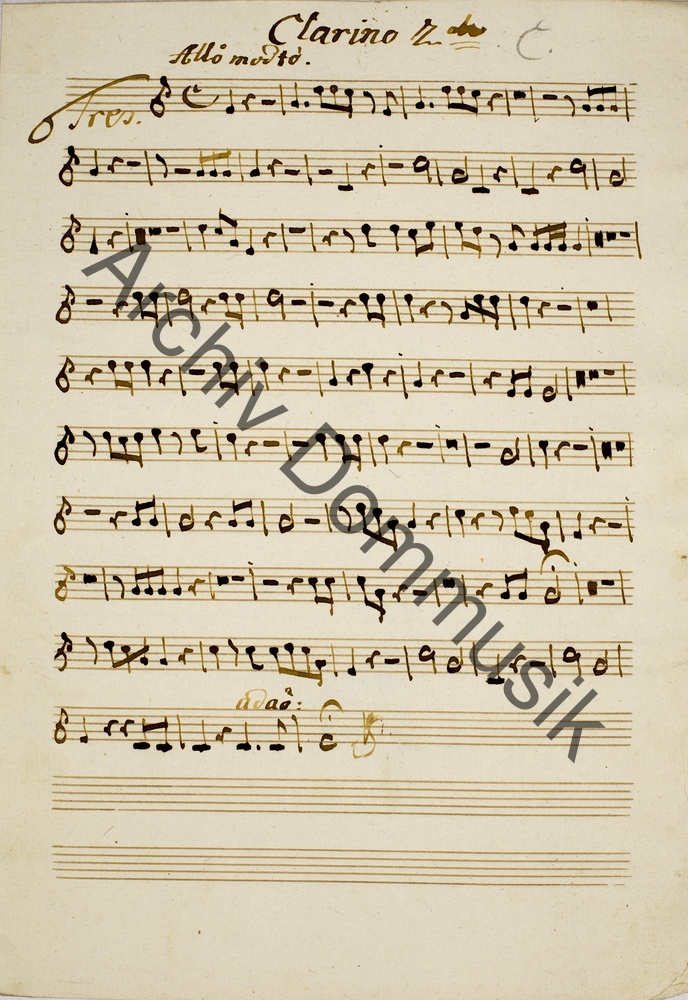 Clarino 2do C.
Allo modto.
Tres.
adao:
Archiv Dommusik